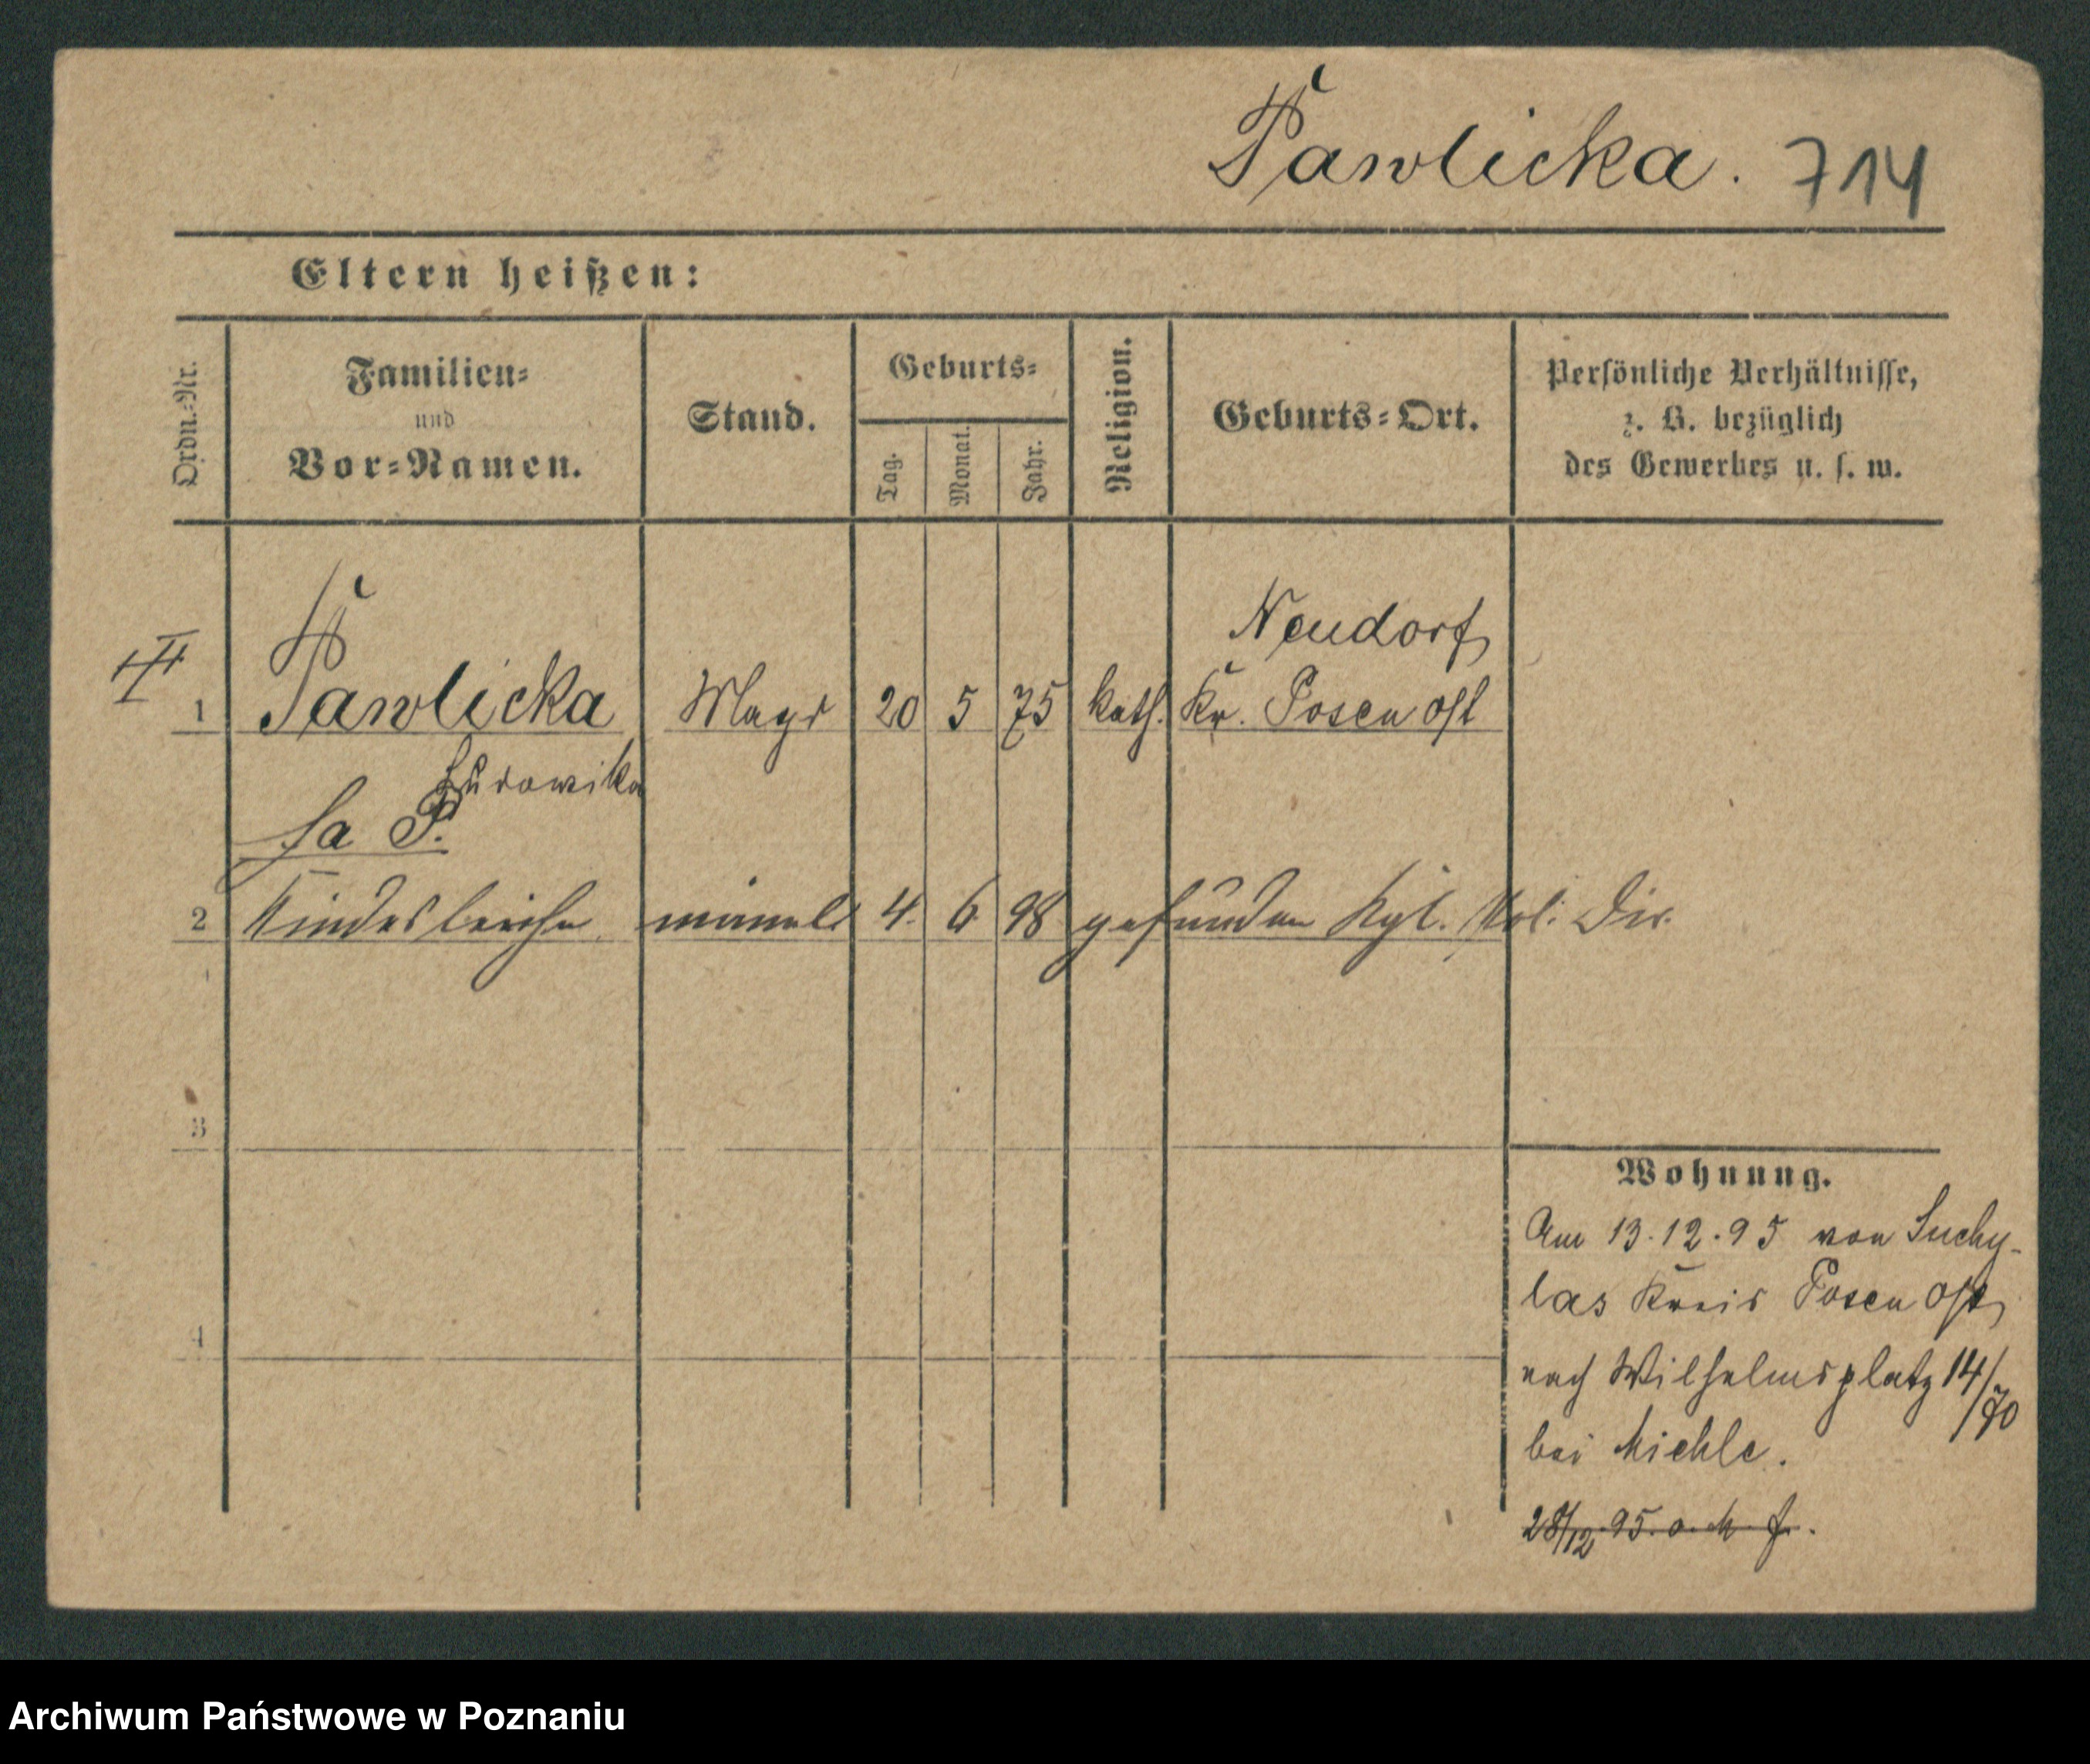 Pawlicka. 714
Eltern heißen:
Ordn.-Nr.
Familien-
und
Vor-Namen.
Stand.
Geburts-
Tag.
Monat.
Jahr.
Religion.
Geburts-Ort.
Persönliche Verhältnisse,
z. B. bezüglich
des Gewerbes u. s. w.
Neudorf
1 Pawlicka Magd 20 5 75 kath. Kr. Posen Ost
P.
2 Kindesleiche 4. 6 98 gefunden Kgl. Pol. Dir.
3
4
Wohnung.
Am 13.12.95 von Suchy-
las Kreis Posen Ost,
nach Wilhelmsplatz 14/
/70
bei Miehle.
28/12.95. o. M. f.
Archiwum Państwowe w Poznaniu